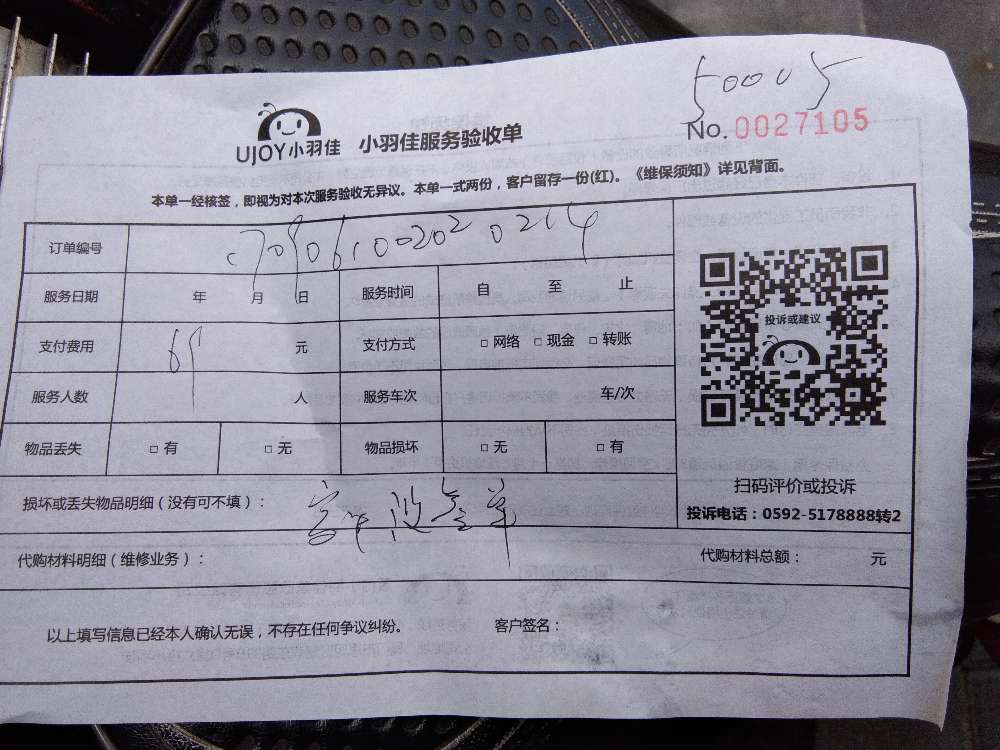 50005
No.0027105
UJOY小羽佳 小羽佳服务验收单
本单一经核签，即视为对本次服务验收无异议。本单一式两份，客户留存一份(红)。《维保须知》详见背面。
订单编号
服务日期 年 月 日 服务时间 自 至 止
支付费用 69 元 支付方式 □ 网络 □ 现金 □ 转账
服务人数 人 服务车次 车/次
物品丢失 □ 有 □ 无 物品损坏 □ 无 □ 有
投诉或建议
扫码评价或投诉
投诉电话：0592-5178888转2
损坏或丢失物品明细（没有可不填）：
代购材料明细（维修业务）： 代购材料总额： 元
以上填写信息已经本人确认无误，不存在任何争议纠纷。 客户签名：